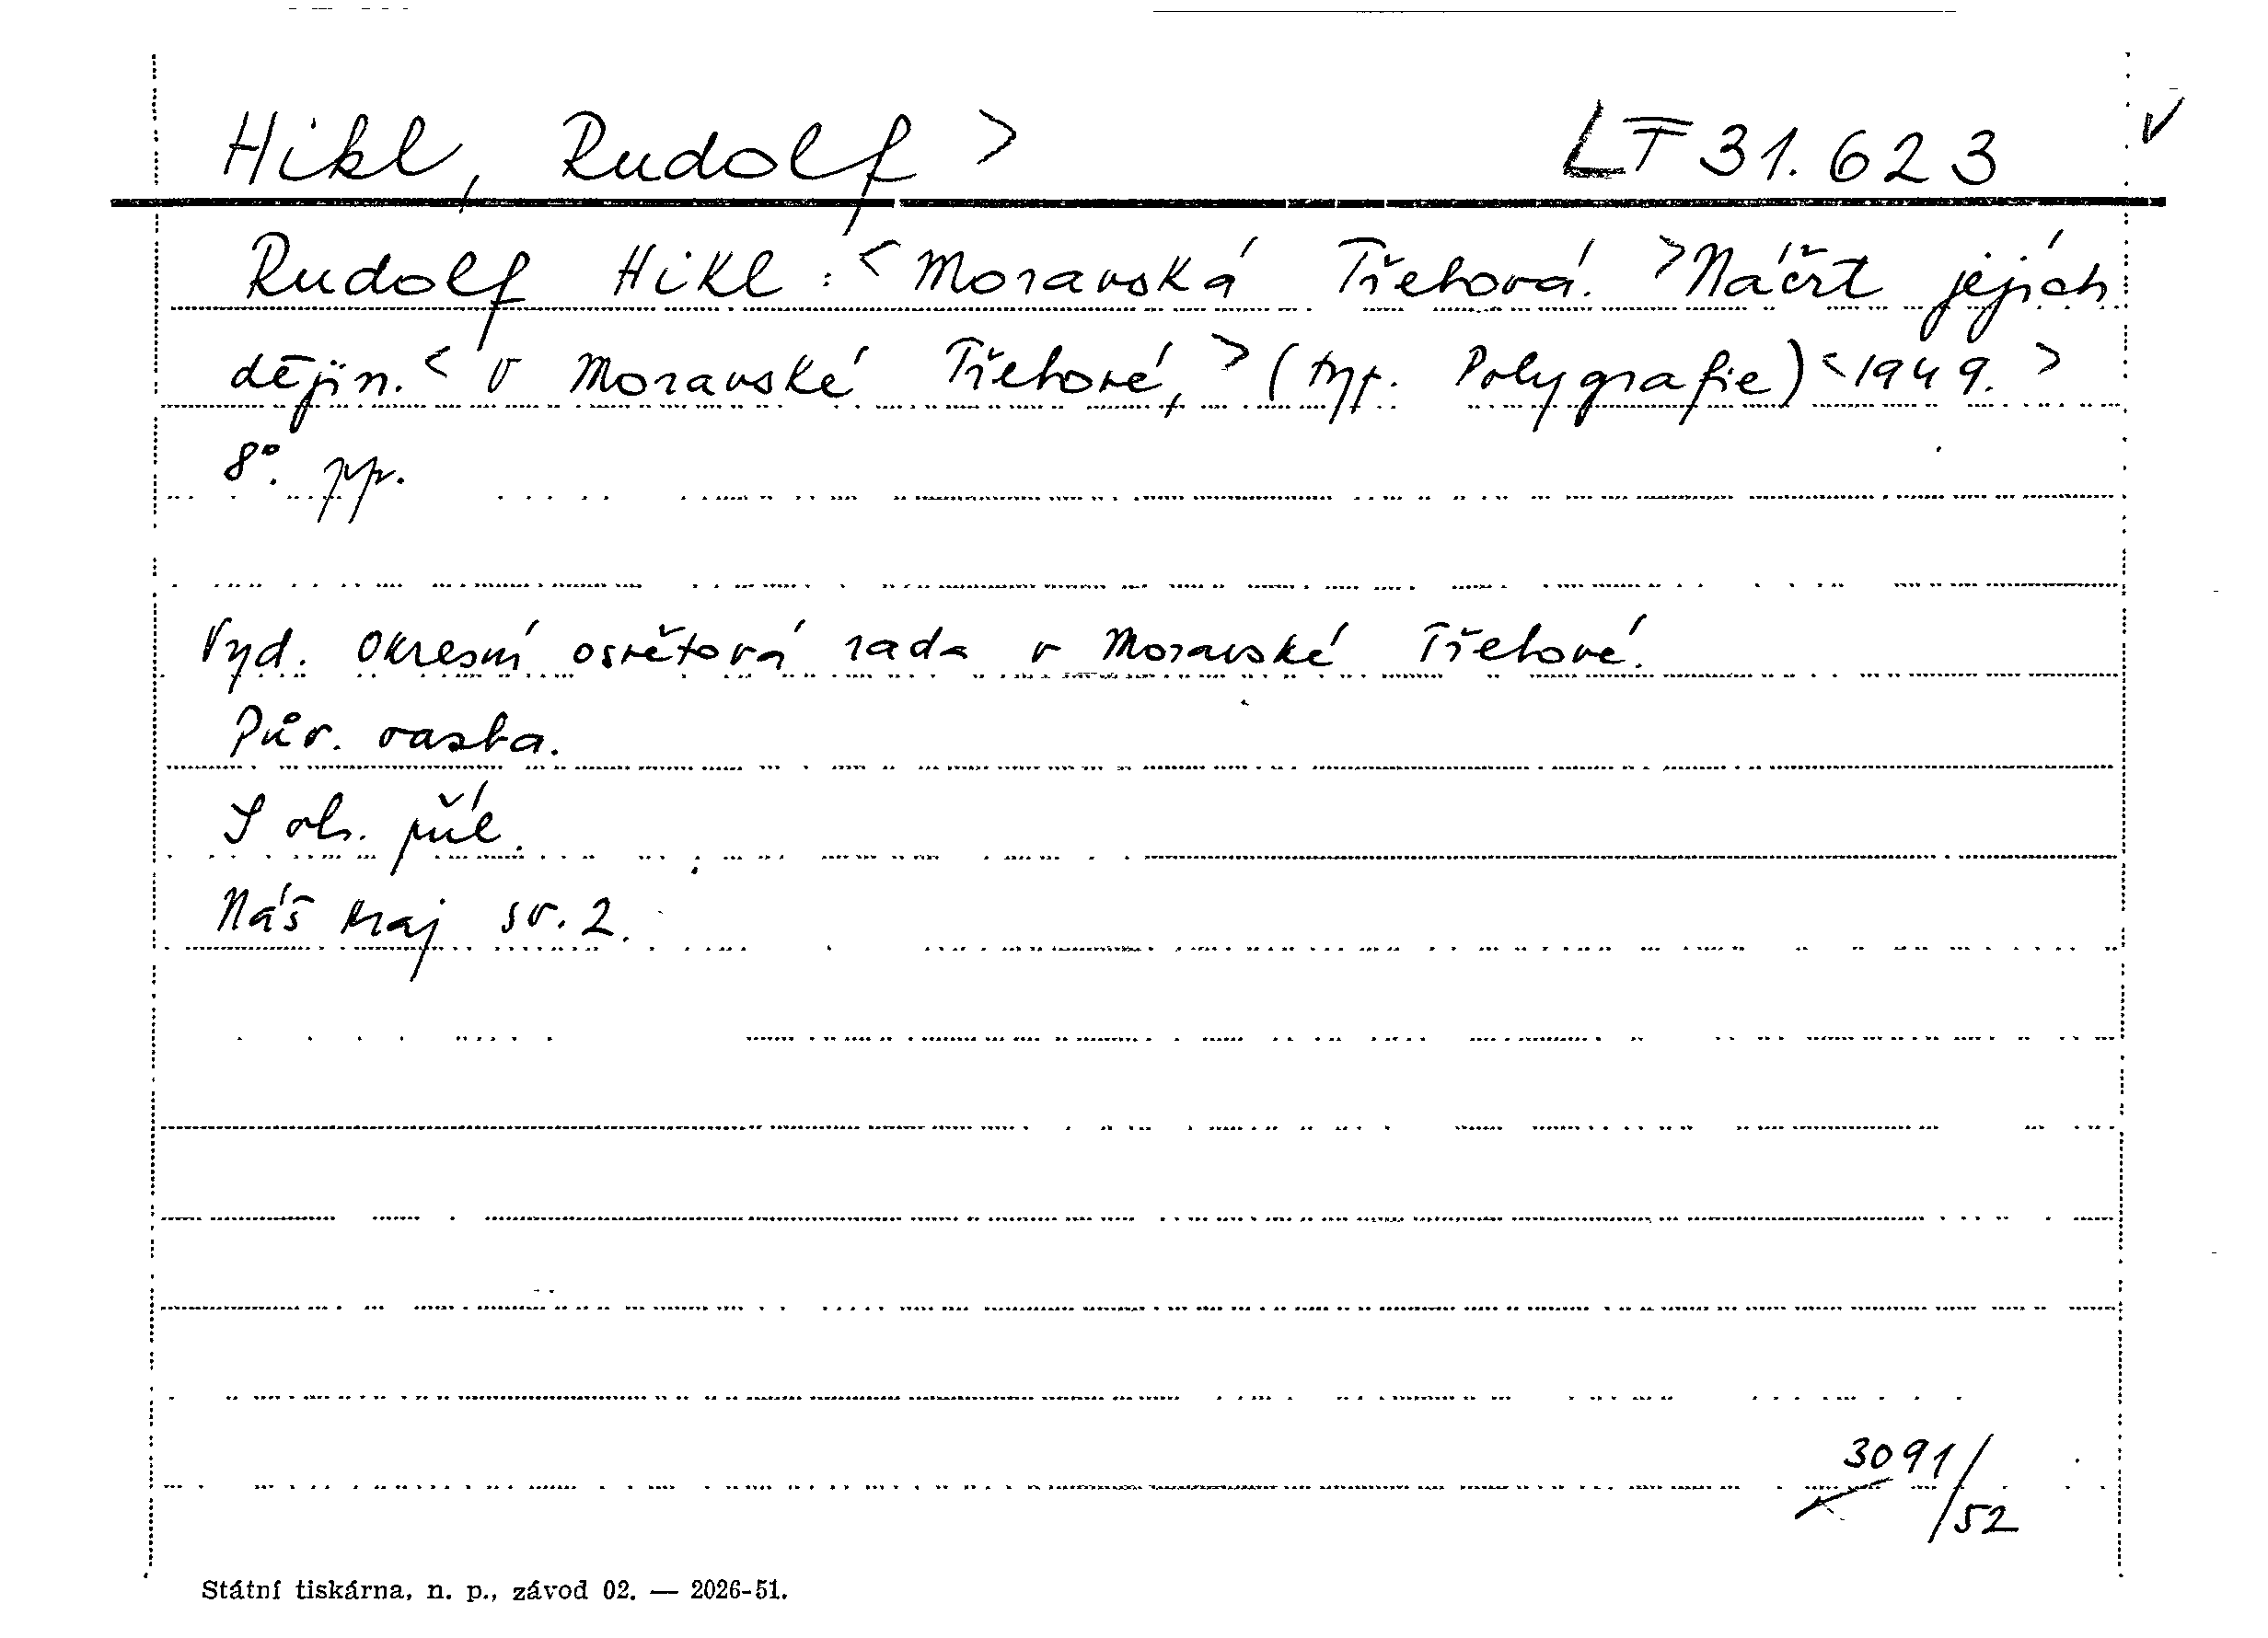 Hikl, Rudolf > LT 31.623 ✓
Rudolf Hikl: <Moravská Třebová. >Náčrt jejích
dějin.< V Moravské Třebové, >(typ. Polygrafie)<1949.>
8°. pp.
Vyd. Okresní osvětová rada v Moravské Třebové.
Pův. vazba.
S ob. příl.
Náš kraj sv. 2.
3091/
/52
Státní tiskárna, n. p., závod 02. — 2026-51.